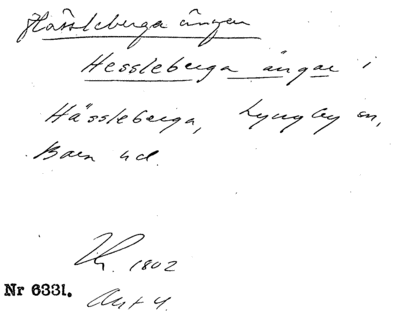 Hässleberga ängen
Hessleberga ängar i
Hässleberga, Lyngby sn,
Bara hd.
1802
Nr 6331. Akt 4.